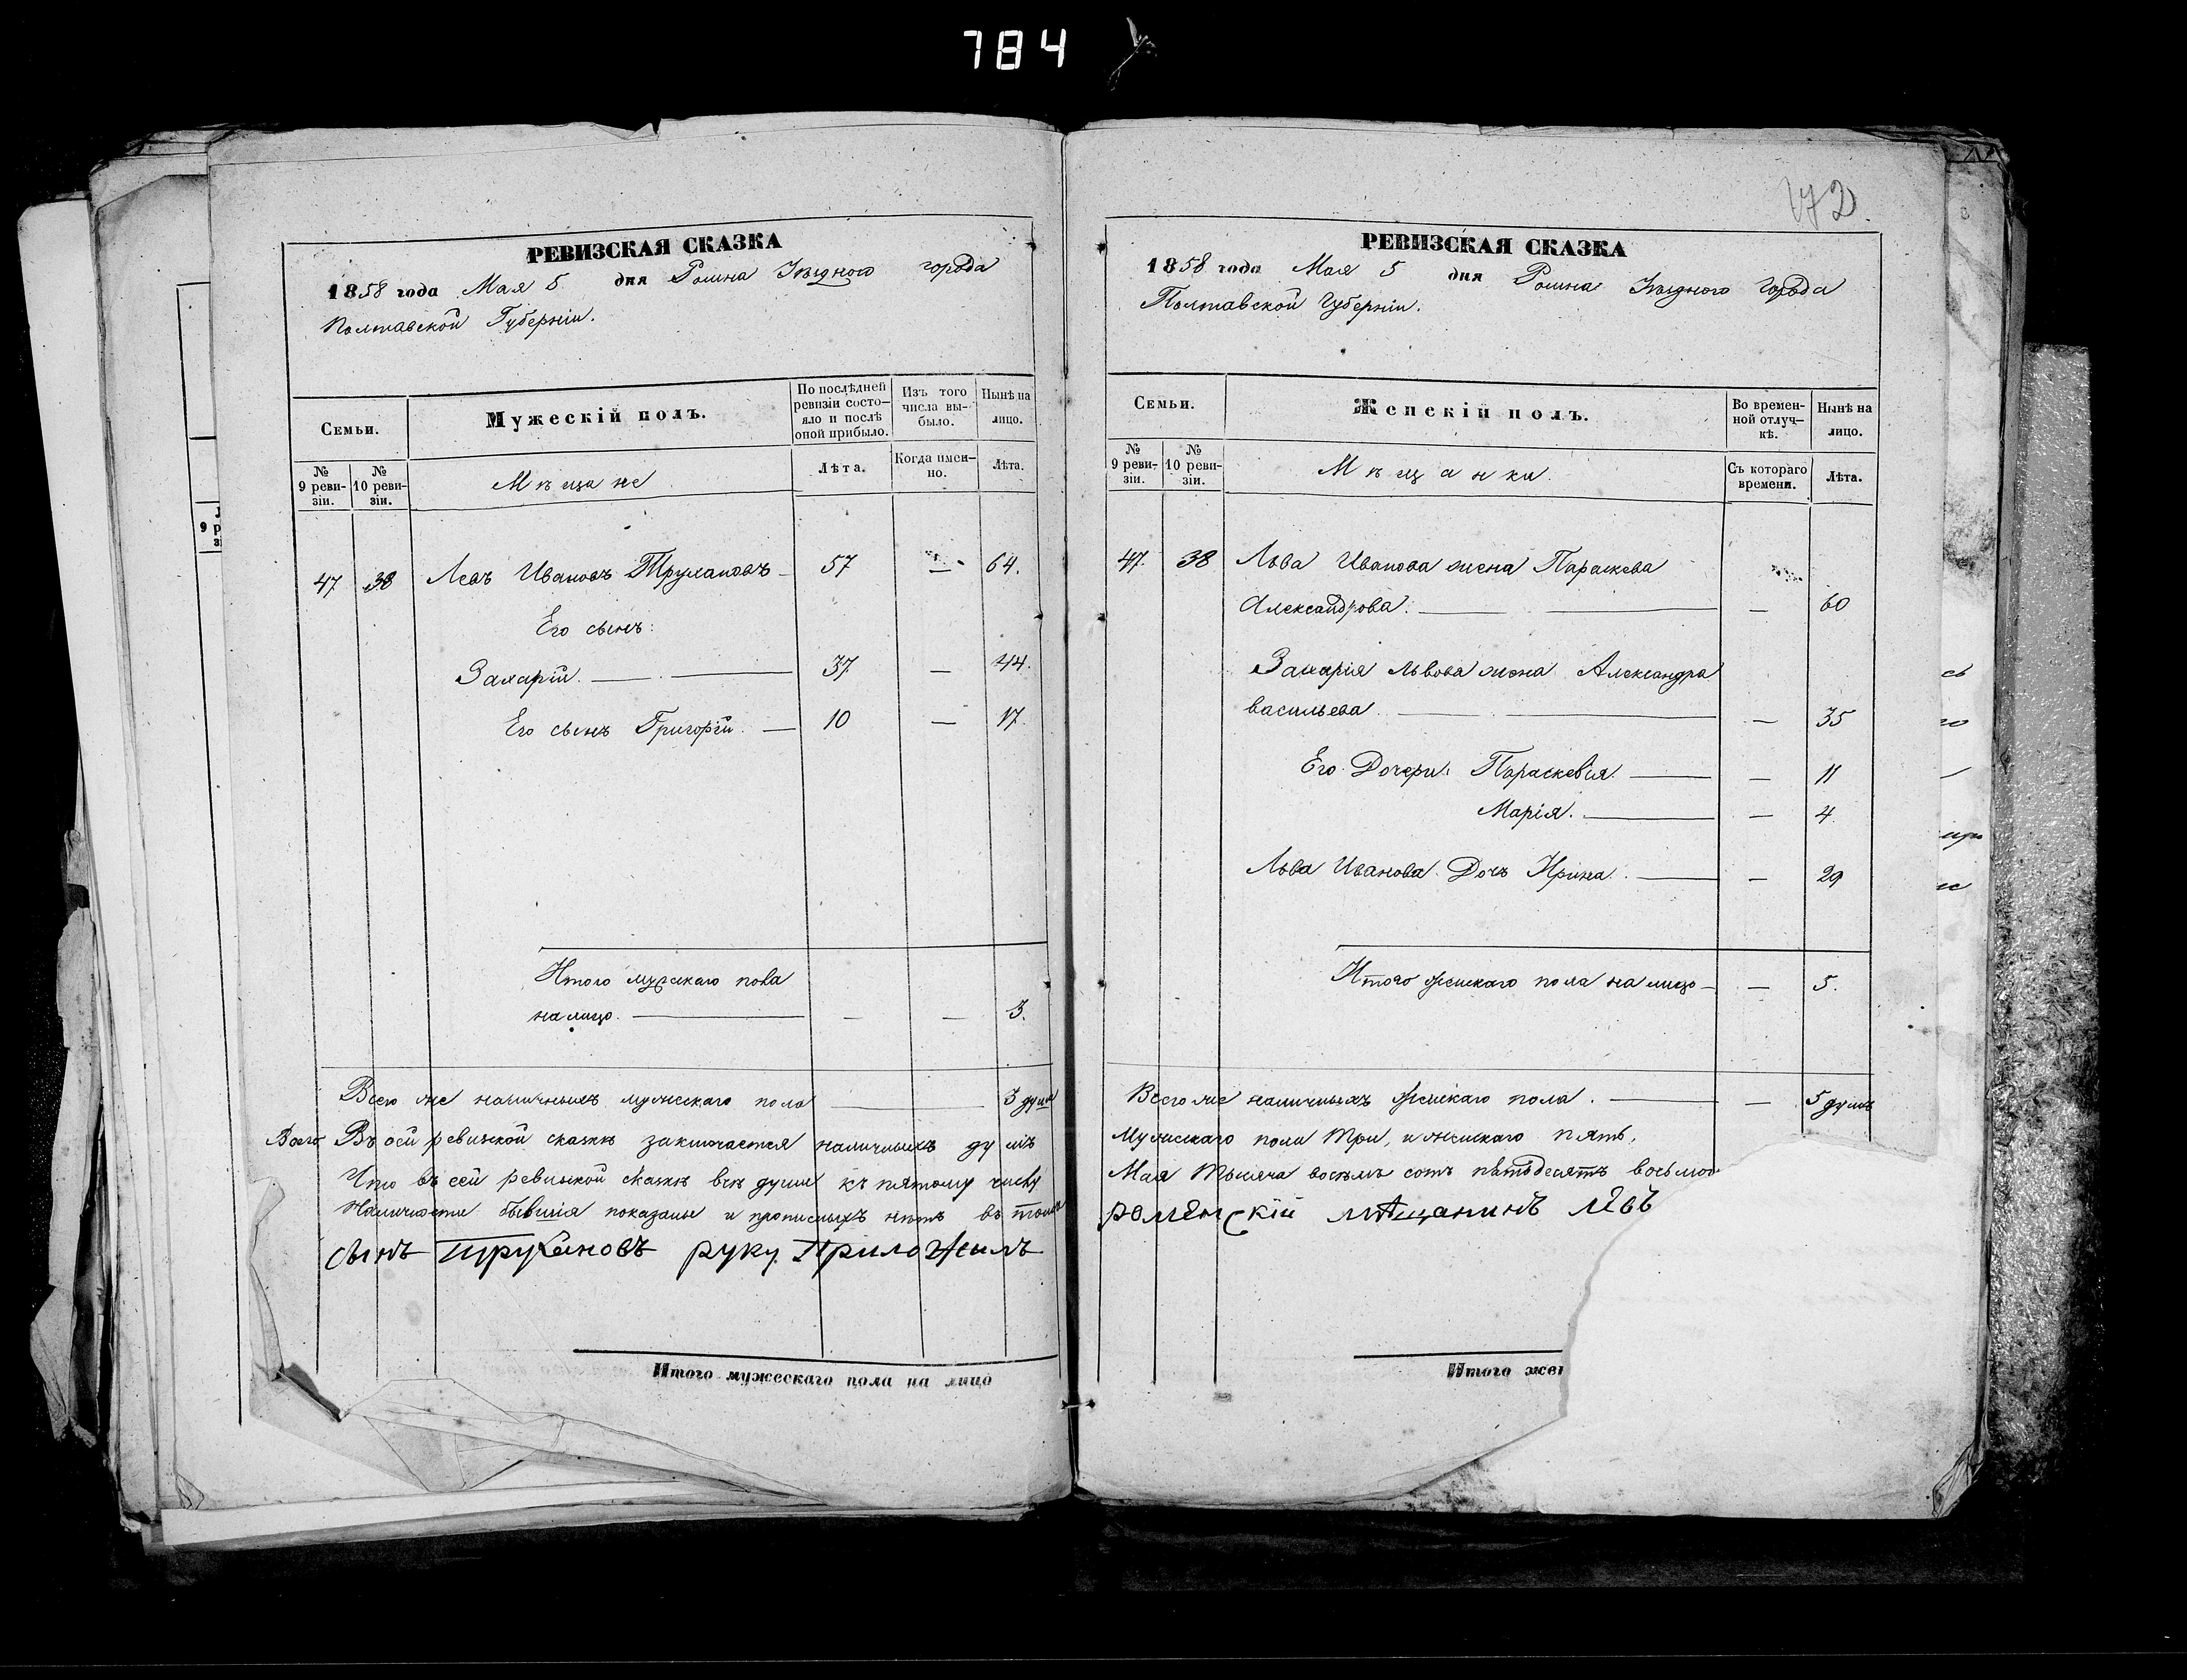 784
РЕВИЗСКАЯ СКАЗКА
1858 года Мая 5 дня Ромна Уѣзднаго города
Полтавской Губерніи.
Семьи.
Мужескій полъ.
По послѣдней ревизіи состояло и послѣ оной прибыло.
Изъ того числа выбыло.
Нынѣ на лицо.
№ 9 ревизіи.
№ 10 ревизіи.
Мѣщане
Лѣта.
Когда именно.
Лѣта.
47 38 Левъ Ивановъ Трухановъ 57 — 64.
Его сынъ:
Захарій. — 37 — 44.
Его сынъ Григорій. — 10 — 17.
Итого мужскаго пола
на лицо. — — — 3.
Всего же наличныхъ мужескаго пола — 3 души
Всего Въ сей ревизкой сказкѣ заключается наличныхъ душъ
Что въ сей ревизкой сказкѣ всѣ души къ пятому числу
бывшія показаны и прописныхъ нѣтъ въ томъ
сынъ Трухановъ руку Приложилъ
Итого мужескаго пола на лицо
172.
РЕВИЗСКАЯ СКАЗКА
1858 года Мая 5 дня Ромна Уѣзднаго города
Полтавской Губерніи.
Семьи.
Женскій полъ.
Во временной отлучкѣ.
Нынѣ на лицо.
№ 9 ревизіи.
№ 10 ревизіи.
Мѣщанки.
Съ котораго времени.
Лѣта.
47. 38 Льва Иванова жена Параскева
Александрова. — — 60
Захарія Львова жена Александра
Васильева. — — 35
Его Дочери: Параскевія. — — 11
Марія. — — 4
Льва Иванова Дочь Ирина. — — 29
Итого женскаго пола на лицо — — 5.
Всего же наличныхъ женскаго пола. — — 5 душъ
Мужескаго пола три, и женскаго пять,
Мая тысяча восемь сотъ пятьдесятъ восьмог
роменскій мѣщанинъ Левъ
Итого жен